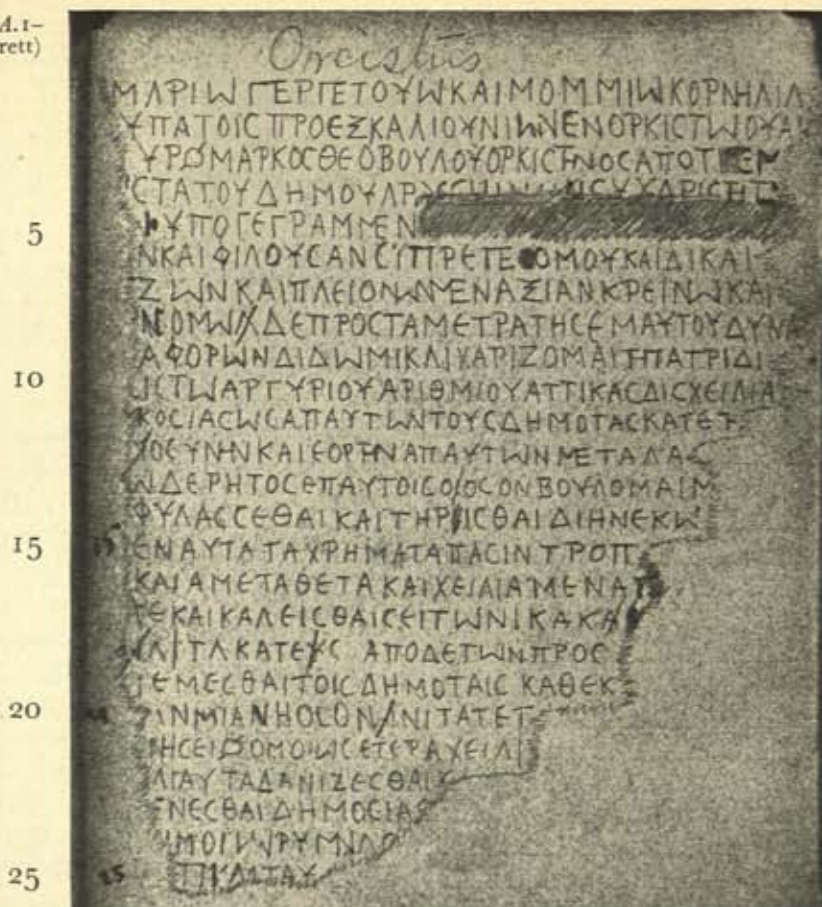 A. 1–
rett)
Orcistus
ΜΑΡΙΩ ΓΕΡΓΕΤΟΥΩΚΑΙΜΟΜΜΙΩΚΟΡΝΗΛΙΑ
ΥΠΑΤΟΙϹΠΡΟΕΞΚΑΛΙΟΥΝΙΩΝΕΝΟΡΚΙϹΤΩΟΥΑ
ΥΡΟΜΑΡΚΟϹΘΕΟΒΟΥΛΟΥΟΡΚΙϹΤΗΝΟϹΑΠΟΤ
ϹΤΑΤΟΥΔΗΜΟΥ
5
ΥΠΟΓΕΓΡΑΜΜΕΝ
ΝΚΑΙΦΙΛΟΥϹΑΝϹΥΠΡΕΠΕ ΟΜΟΥΚΑΙΔΙΚΑΙ
ΖΩΝΚΑΙΠΛΕΙΟΝΩΜΕΝΑΞΙΑΝΚΡΕΙΝΩΚΑΙ
ΔΕΠΡΟϹΤΑΜΕΤΡΑΤΗϹΕΜΑΥΤΟΥΔΥΝΑ
ΑΦΟΡΩΝΔΙΔΩΜΙΚΑΙΧΑΡΙΖΟΜΑΙΤΗΠΑΤΡΙΔΙ
10
ΩϹΤΩΑΡΓΥΡΙΟΥΑΡΙΘΜΙΟΥΑΤΤΙΚΑϹΔΙϹΧΕΙΛΙΑ
ΚΟϹΙΑϹΩϹΑΠΑΥΤΩΝΤΟΥϹΔΗΜΟΤΑϹΚΑΤΕΤ
ΥΘΕΥΝΗΝΚΑΙΕΟΡΤΗΝΑΠΑΥΤΩΝΜΕΤΑΛΑ
ΩΔΕΡΗΤΟϹΕΠΑΥΤΟΙϹΟ ΟϹΟΝΒΟΥΛΟΜΑΙΜ
ΦΥΛΑϹϹΕΘΑΙΚΑΙΤΗΡΙϹΘΑΙΔΙΗΝΕΚΩ
15
15 ΕΝΑΥΤΑΤΑΧΡΗΜΑΤΑΠΑϹΙΝΤΡΟΠ
ΚΑΙΑΜΕΤΑΘΕΤΑΚΑΙΧΕΙΛΙΑΜΕΝΑΤ
ΤΕΚΑΙΚΑΛΕΙϹΘΑΙϹΕΙΤΩΝΙΚΑΚΑ
ΤΑΚΑΤΕ Ϲ ΑΠΟΔΕΤΩΝΠΡΟϹ
ΕΜΕϹΘΑΙΤΟΙϹΔΗΜΟΤΑΙϹ ΚΑΘΕΚ
20
ΙΝΜΙΑΝΗΟϹΟΝ ΝΙΤΑΤΕΤ
ΗϹΕΙΔΟΜΟΙΩϹΕΤΕΡΑΧΕΙΛ
ΛΙΑΥΤΑΔΑΝΙΖΕϹΘΑΙ
ΕΝΕϹΘΑΙΔΗΜΟϹΙΑϹ
25
25